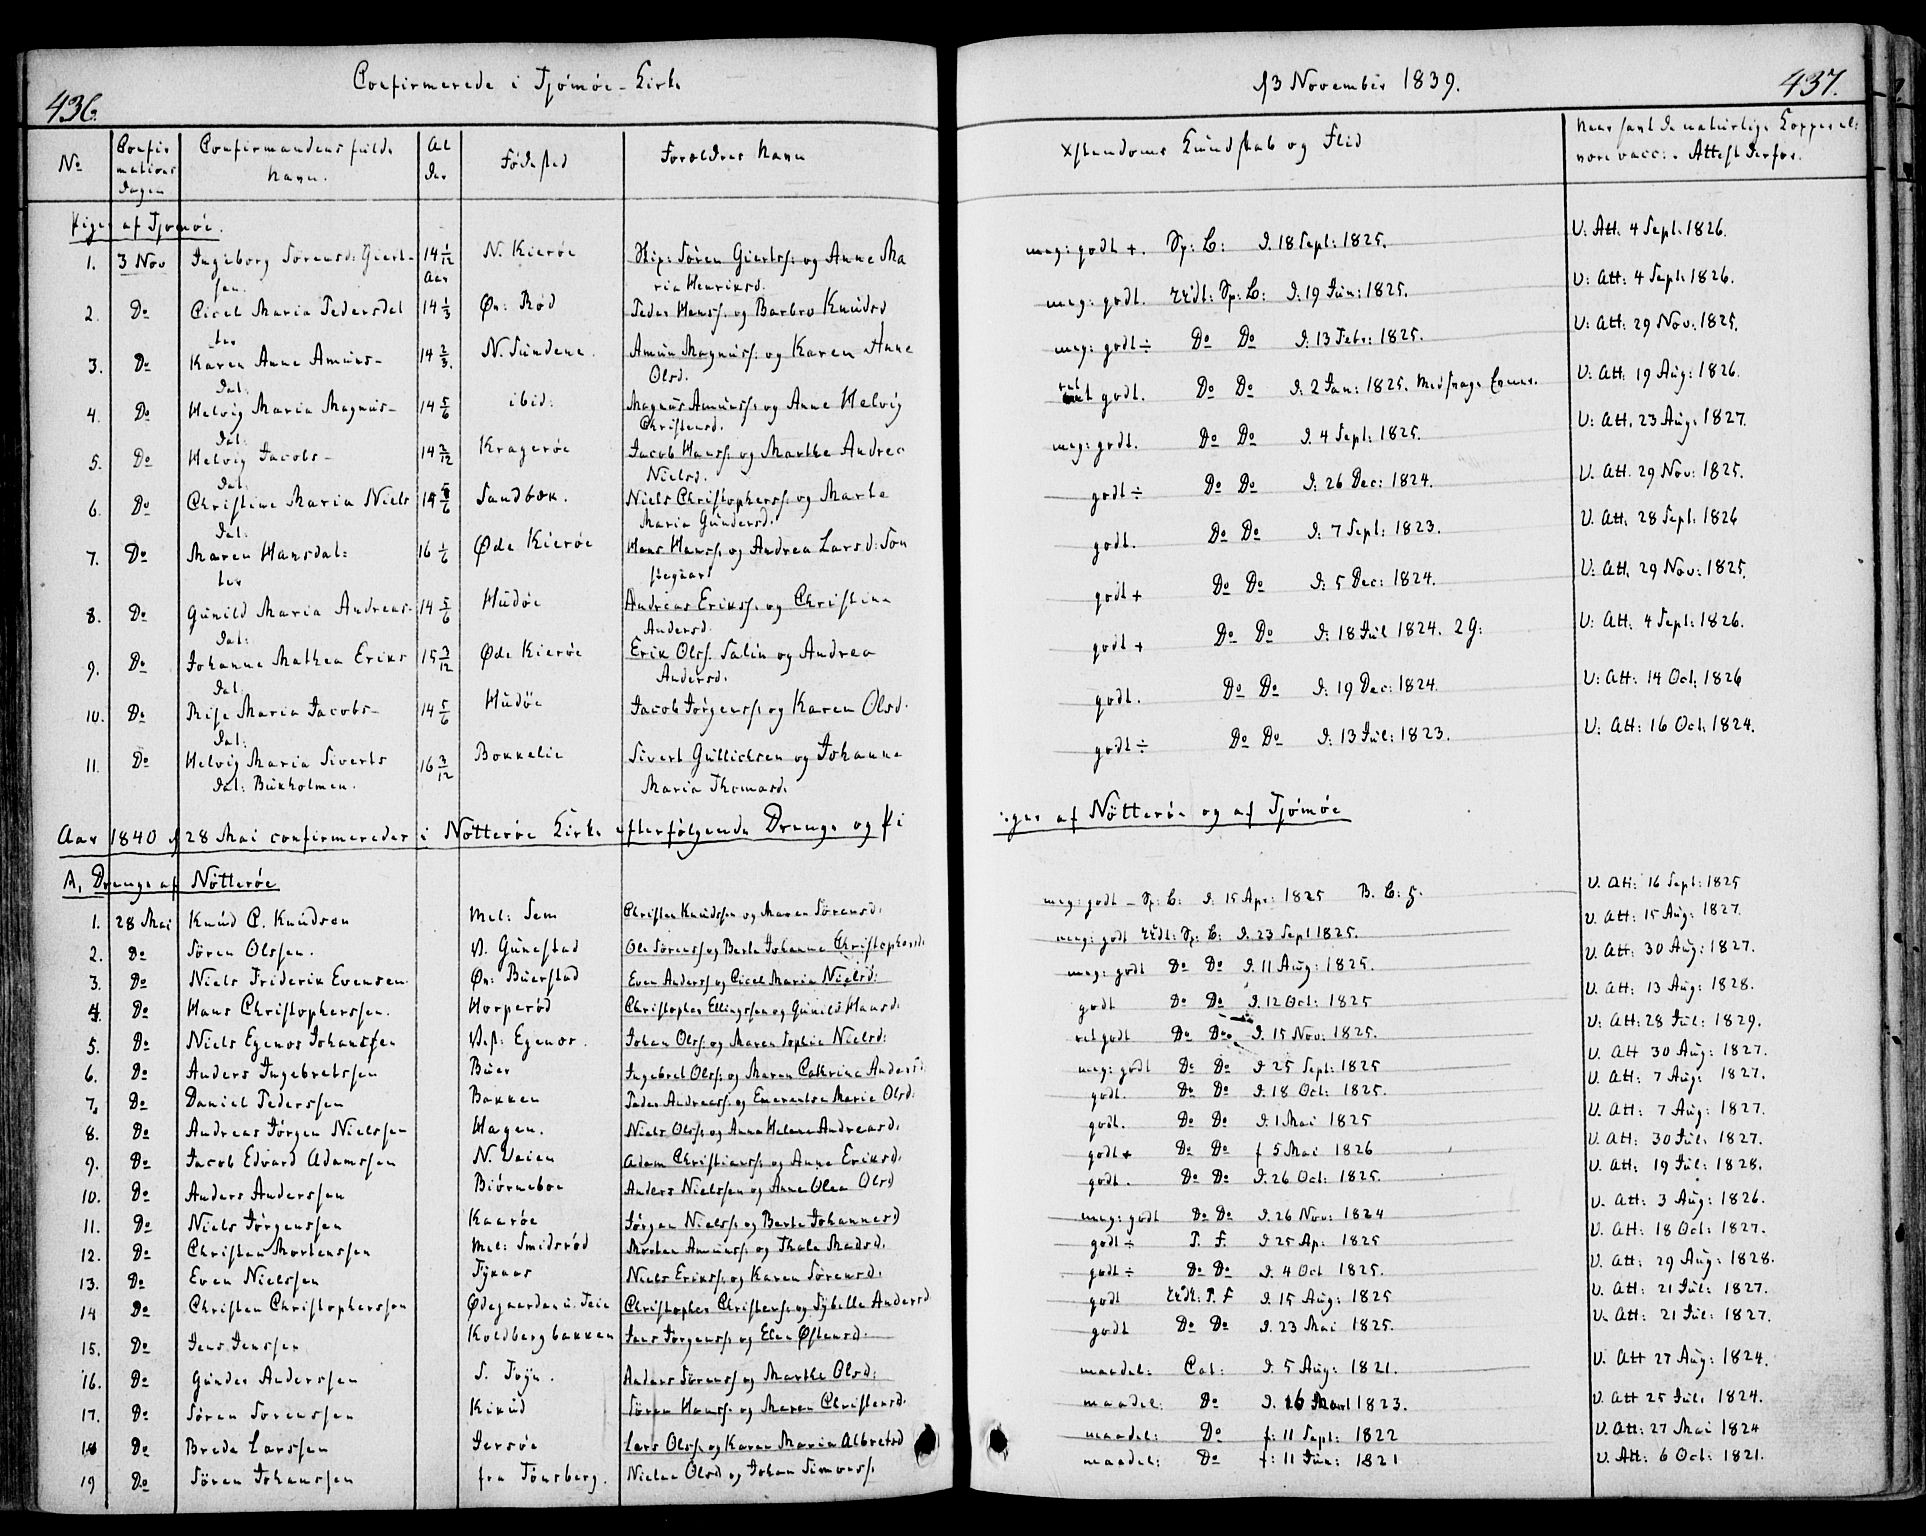 436.
Confirmerede i Tjømøe-Kirke
No
Confirmations Dagen
Confirmandens fulde Navn.
Alder
Fødested
Forældres Navn
Piger af Tjømøe.
1. 3 Nov Ingeborg Sørensd: Giertsen. 14 1/12 Aar N. Kierøe Skip: Søren Giertss: og Anne Maria Henriksd.
2. Do Cicel Maria Pedersdatter 14 1/3 Øn: Rød Peder Hanss. og Barbro Knudsd
3. Do Karen Anne Amunsdat: 14 2/3. N. Sundene. Amun Magnuss. og Karen Anne Olsd.
4. Do Helvig Maria Magnusdat: 14 5/6 ibid: Magnus Amunss. og Anne Helvig Christensd.
5. Do Helvig Jacobsdat: 14 2/12 Kragerøe Jacob Hanss. og Marthe Andrea Nielsd.
6. Do Christine Maria Nielsdat: 14 5/6 Sandbæk. Niels Christopherss. og Marte Maria Gundersd.
7. Do Maren Hansdatter 16 1/6 Øde Kierøe Hans Hanss. og Andrea Larsd:
8. Do Gunild Maria Andreasdat: 14 5/6 Hudøe Andreas Erikss. og Christine Andersd.
9. Do Johanne Mathea Eriksdat: 15 3/12 Øde Kierøe Erik Olss. Salin og Andrea Andersd.
10. Do Rise Maria Jacobsdat: 14 5/6 Hudøe Jacob Jørgenss. og Karen Olsd.
11. Do Helvig Maria Sivertsdat: Buxholmen. 16 3/12 Bokkelie Sivert Gullichsen og Johanne Maria Thomasd.
Aar 1840 d 28 Mai confirmeredes i Nøtterøe Kirke efterfølgende Drenge og Pi
A, Drenge af Nøtterøe
1. 28 Mai Knud C. Knudsen Mel: Sem Christen Knudssen og Maren Sørensd.
2. Do Søren Olssen. V. Gunestad Ole Sørenss og Berte Johanne Christophersd.
3. Do Niels Friderik Evensen Øn: Buerstad Even Anderss og Cicel Maria Nielsd:
4. Do Hans Christopherssen. Horperød Christopher Ellingssen og Gunild Hansd.
5. Do Niels Egenes Johanssen Vest: Egenes. Johan Olss. og Maren Sophie Nielsd:
6. Do Anders Ingebretssen Buer Ingebret Olss: og Maren Cathrine Andersd:
7. Do Daniel Pederssen Bakken Peder Andreass: og Emerentse Marie Olsd:
8. Do Andreas Jørgen Nielssen Hagen. Niels Olss. og Anne Helene Andreasd.
9. Do Jacob Edvard Adamssen N. Veien Adam Christianss. og Anne Eriksd.
10. Do Anders Anderssen Biørneboe Anders Nielssen og Anne Olea Olsd
11. Do Niels Jørgenssen Kaarøe Jørgen Nielss: og Berte Johannesd
12. Do Christen Mortenssen Mel: Smidsrød Morten Amunss. og Thale Madsd.
13. Do Even Nielssen Tjkaas Niels Erikss: og Karen Sørensd.
14 Do Christen Christopherssen Ødegaarden u. Teie Christopher Christenss: og Sybelle Andersd
15. Do Jens Jenssen Koldbergbakken Jens Jørgenss: og Elen Østensd.
16. Do Gunder Anderssen S. Føyn. Anders Sørenss og Marthe Olsd:
17. Do Søren Sørenssen Kirud Søren Hanss. og Maren Christensd.
18 Do Brede Larssen Jersøe Lars Olss. og Karen Maria Albretsd
19 Do Søren Johanssen fra Tønsberg. Nielne Olsd og Johan Simonss.
d 3 November 1839.
437.
Xstendoms Kundskab og Flid
Naar havt de naturlige Kopper el: være vacc:. Attest derfor.
meg: godt +. Sp: C: d. 18 Sept: 1825. V: Att. 4 Sept. 1826.
meg: godt. Sp: C: d. 19 Jun: 1825. V: Att: 4 Sept: 1826.
meg: godt ÷ Do Do d. 13 Febr: 1825. V: Att: 29 Nov. 1825.
godt. Do Do d. 2 Jan: 1825. V: Att: 19 Aug: 1826.
meg: godt. Do Do d. 4 Sept: 1825. V: Att. 23 Aug: 1827.
godt ÷ Do Do d: 26 Dec: 1824. V. Att. 29 Nov: 1825.
godt. Do Do d: 7 Sept: 1823. V. Att. 28 Sept: 1826
godt + Do Do d: 5 Dec: 1824. V: Att. 29 Nov: 1825.
godt + Do Do d: 18 Jul 1824. 2 G: V: Att: 4 Sept: 1826.
godt. Do Do d: 19 Dec: 1824. V: Att: 14 Oct: 1826
godt ÷ Do Do d: 13 Jul: 1823. V: Att: 16 Oct: 1824.
iger af Nøtterøe og af Tjømøe
meg: godt – Sp: C: d. 15 Apr: 1825 B. C: V. Att: 16 Sept: 1825
meg: godt Sp: C: d. 23 Sept 1825. V. Att: 15 Aug: 1827.
meg: godt Do Do d. 11 Aug: 1825. V. Att: 30 Aug: 1827.
godt Do Do d. 12 Oct: 1825 V. Att: 13 Aug: 1828.
ret godt Do Do d. 15 Nov: 1825. V: Att: 28 Jul: 1829.
meg: godt Do Do d 25 Sept: 1825 V. Att 30 Aug: 1827.
godt. Do Do d. 18 Oct: 1825. V. Att: 7 Aug: 1827.
godt. Do Do d. 1 Mai 1825 V. Att: 7 Aug: 1827.
godt + Do Do f 5 Mai 1826 V. Att: 30 Jul: 1827.
godt. Do Do d. 26 Oct: 1825. V. Att: 19 Jul: 1828.
meg: godt Do Do d. 26 Nov: 1824 V. Att: 3 Aug: 1826.
godt ÷ P. F. d. 25 Ap: 1825 V. Att: 18 Oct: 1827.
godt ÷ Do Do d. 4 Oct 1825. V. Att: 29 Aug: 1828.
godt P. F d. 15 Aug: 1825 V. Att: 21 Jul: 1827.
godt Do Do d. 23 Mai 1825. V. Att: 21 Jul: 1827.
maadel: Cat: d. 5 Aug: 1821. V. Att 27 Aug: 1824.
maadel: Do d. 16 1823. V. Att 25 Jul: 1824.
maadel: Do f: 11 Sept: 1822 V. Att: 27 Mai 1824
maadel: Do f: 11 Jun: 1821 V. Att: 6 Oct: 1821.